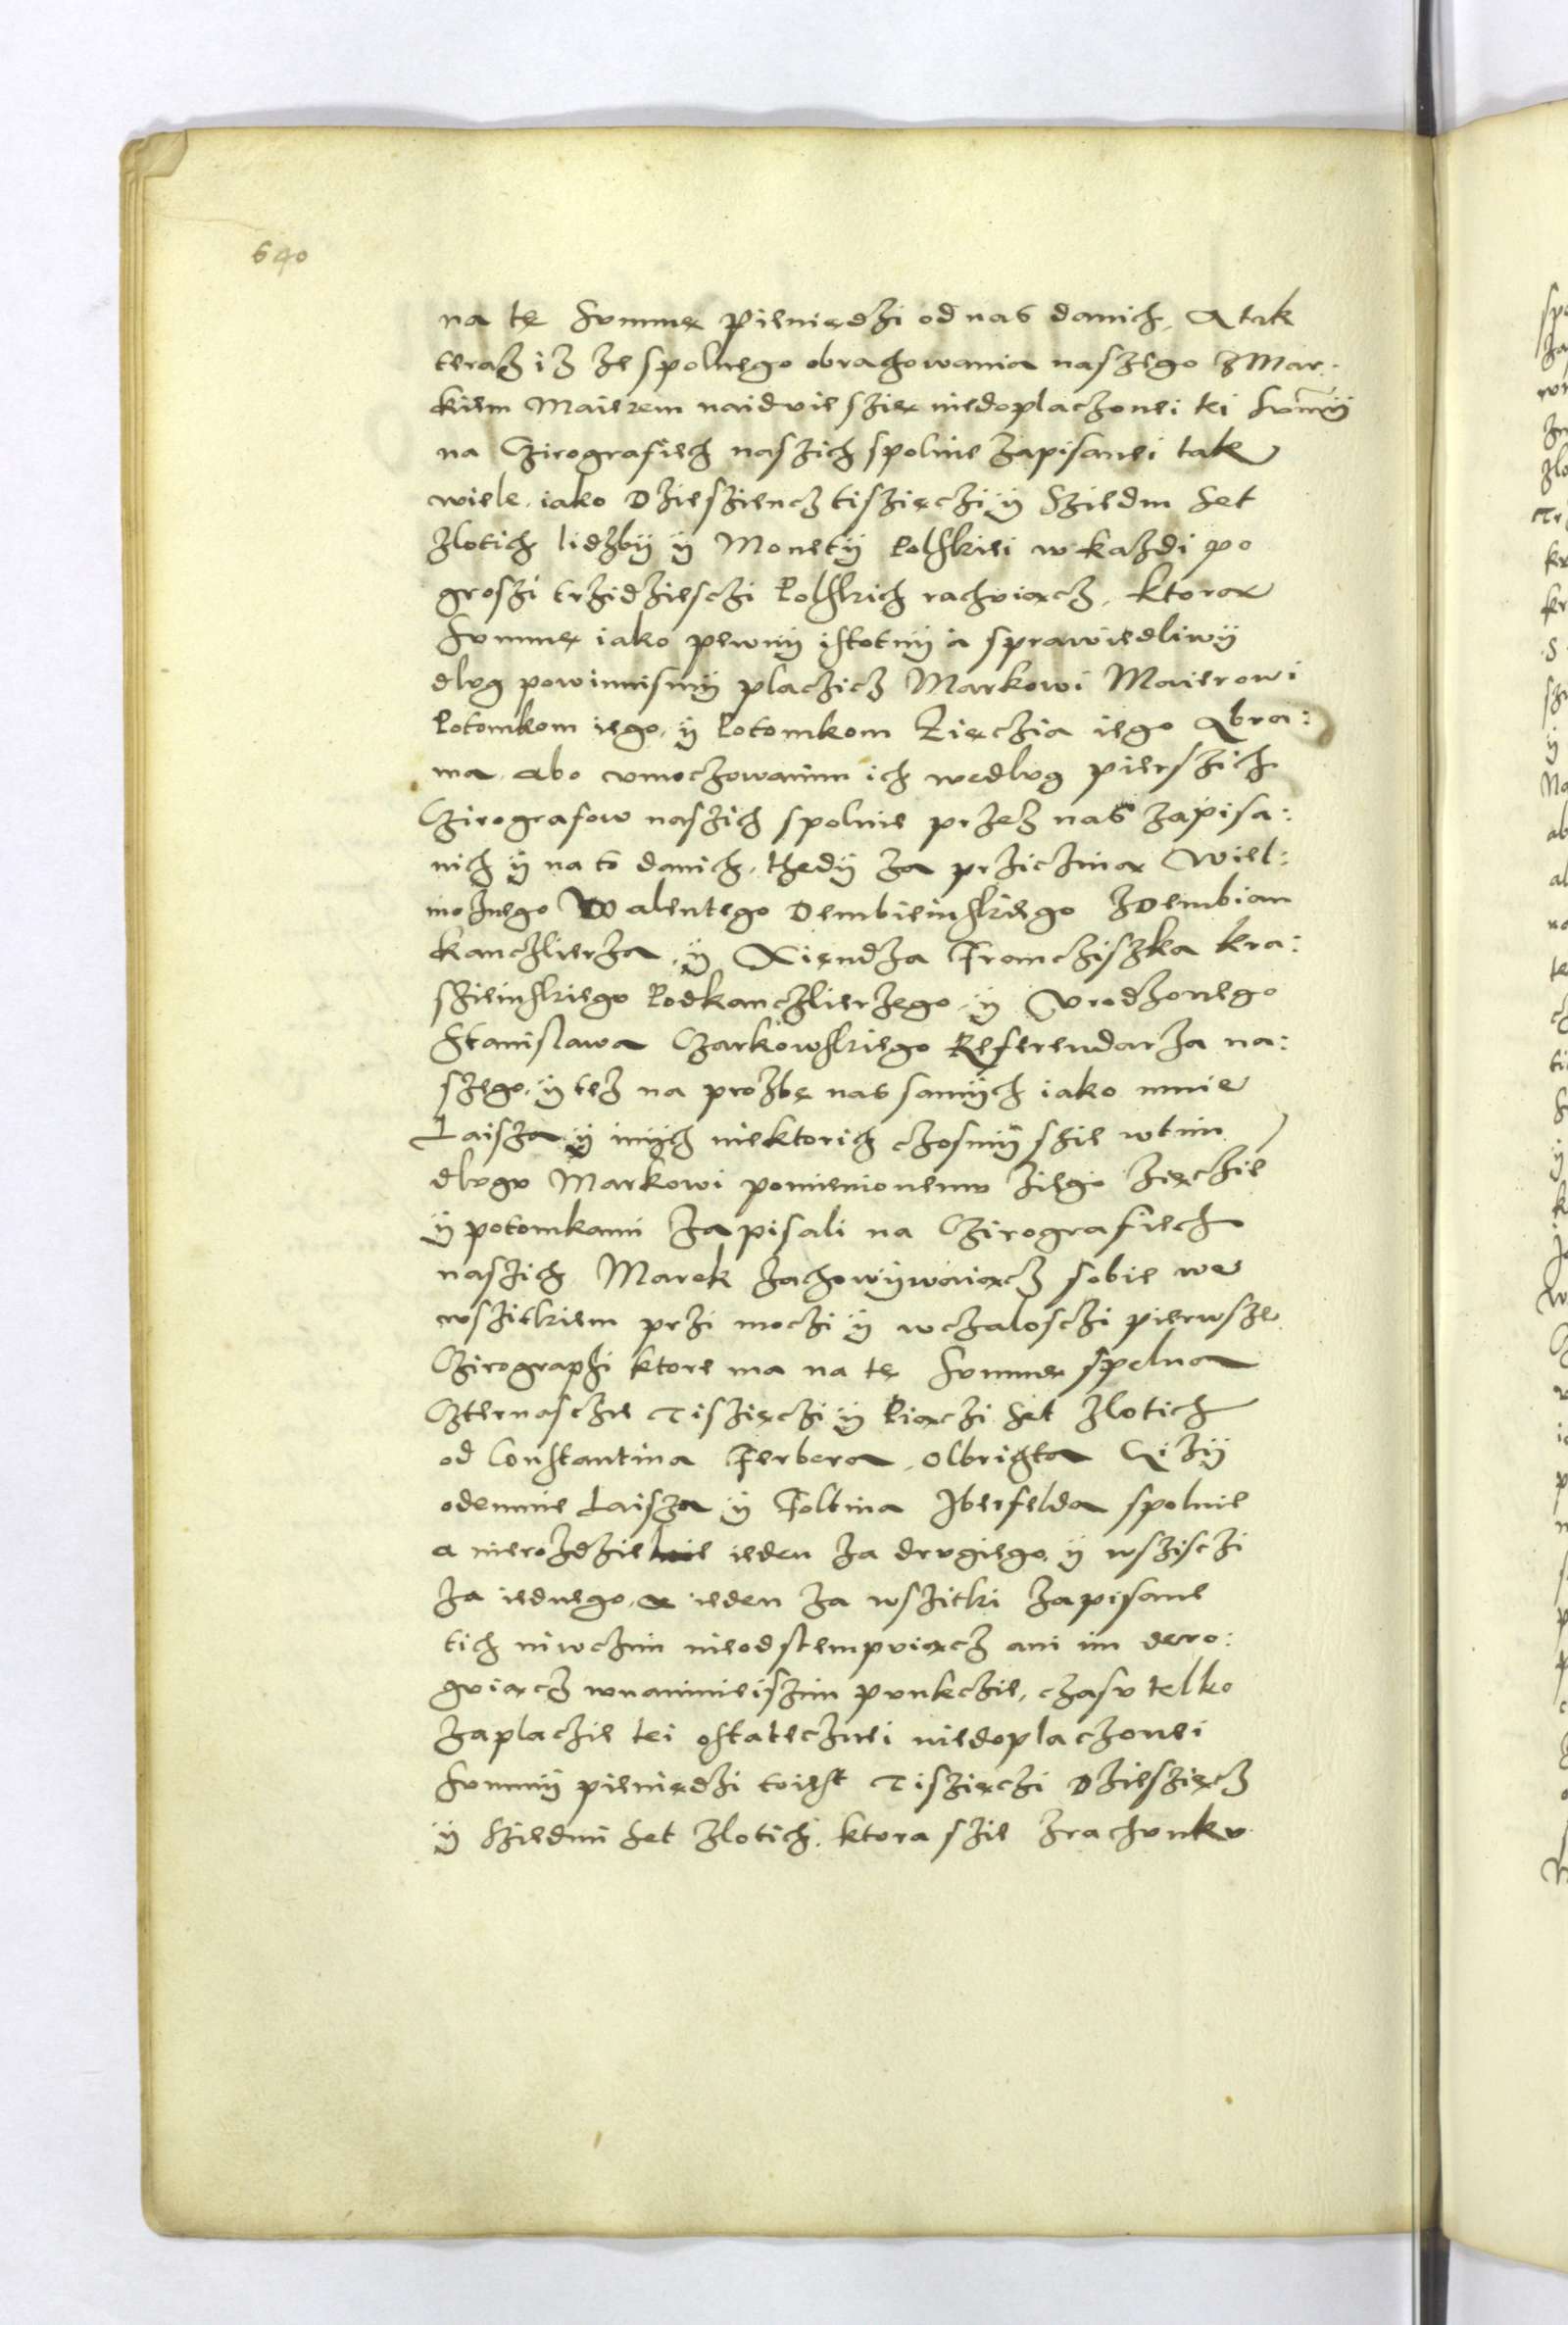 640
na tę Summę pieniędzi od nas danich, A tak
teraz iz ze spolnego obrachowania naszego z Mar-
kiem Maierem naiduie szię niedoplaczonei tei Summÿ
na Czirografiech naszich spolnie zapisanei tak
wiele, iako Dziesziencz tiszięczi ÿ Sziedm Set
zlotich lidzbÿ ÿ Monetÿ Polskiei w kazdi po
groszi trzidzieschi Polskich rachuiącz, ktorą
Summę iako pewnÿ istotnÿ a sprawiedliwÿ
dlug powinnismÿ placzicz Markowi Maierowi
Potomkom iego, ÿ Potomkom Zięczia iego Abra:
ma, abo umoczowanim ich wedlug pierszich
Czirografow naszich spolnie przez nas zapisa:
nich ÿ na to danich, thedÿ za prziczinią Wiel:
moznego Walentego Dembieinskiego z Dembian
Kanczlierza, ÿ Xiendza Franczisżka Kra:
szieinskiego Podkanczlierzego, ÿ Urodzonego
Stanislawa Czarkowskiego Referendarza na:
szego, ÿ tez na prozbę nas samÿch iako mnie
Laisza ÿ inÿch niektorich czosmÿ szie w tim
dlugu Markowi pomienionemu z iego zięczie
ÿ potomkami zapisali na Czirografiech
naszich Marek zachowÿwaiącz sobie we
wszitkiem przi moczi ÿ w czaloschi pierwsze
Czirographi ktore ma na tę Summę spelna
Czternaschie Tiszięczi ÿ Piączi Set zlotich
od Constantina Ferbera, Olbrichta Gizÿ
odemnie Laisza ÿ Foltina Iberfelda spolnie
a nierozdzielnie ieden za drugiego, ÿ wszischi
za iednego, a ieden za wszitki zapisane
tich niwczim nieodstempuiącz ani im dero:
guiącz w namnieiszim punkczie, czasu telko
zaplaczie tei ostatecznei niedoplaczonei
Summÿ pieniędzi toiest Tiszięczi Dzieszięcz
ÿ Sziedmi Set zlotich, ktora szie z rachunku